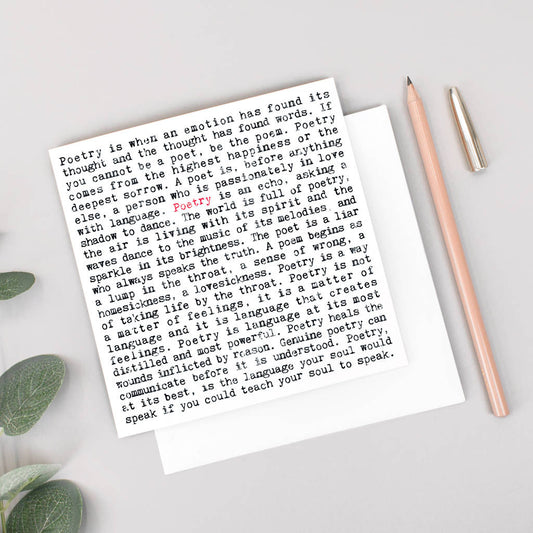 Poetry is when an emotion has found its
thought and the thought has found words. If
you cannot be a poet, be the poem. Poetry
comes from the highest happiness or the
deepest sorrow. A poet is, before anything
else, a person who is passionately in love
with language. Poetry is an echo, asking a
shadow to dance. The world is full of poetry,
the air is living with its spirit and the
waves dance to the music of its melodies and
sparkle in its brightness. The poet is a liar
who always speaks the truth. A poem begins as
a lump in the throat, a sense of wrong, a
homesickness, a lovesickness. Poetry is a way
of taking life by the throat. Poetry is not
a matter of feelings, it is a matter of
language and it is language that creates
feelings. Poetry is language at its most
distilled and most powerful. Poetry heals the
wounds inflicted by reason. Genuine poetry can
communicate before it is understood. Poetry,
at its best, is the language your soul would
speak if you could teach your soul to speak.